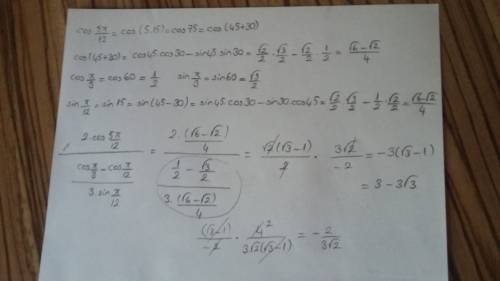 cos 5π/12 = cos(5.15) = cos75 = cos(45+30)
cos(45+30) = cos45.cos30 - sin45.sin30 = √2/2 . √3/2 - √2/2 . 1/2 = (√6-√2)/4
cos π/3 = cos60 = 1/2 sin π/3 = sin60 = √3/2
sin π/12 = sin15 = sin(45-30) = sin45.cos30 - sin30.cos45 = √2/2 . √3/2 - 1/2 . √2/2 = (√6-√2)/4
(2.cos 5π/12) / ((cos π/3 - cos π/12) / (3.sin π/12)) = (2.(√6-√2)/4) / ((1/2 - √3/2) / (3.(√6-√2)/4)) = √2(√3-1)/2 . 3√2/-2 = -3(√3-1)
= 3-3√3
(√3-1)/-2 . 4 2/3√2(√3-1) = -2/3√2